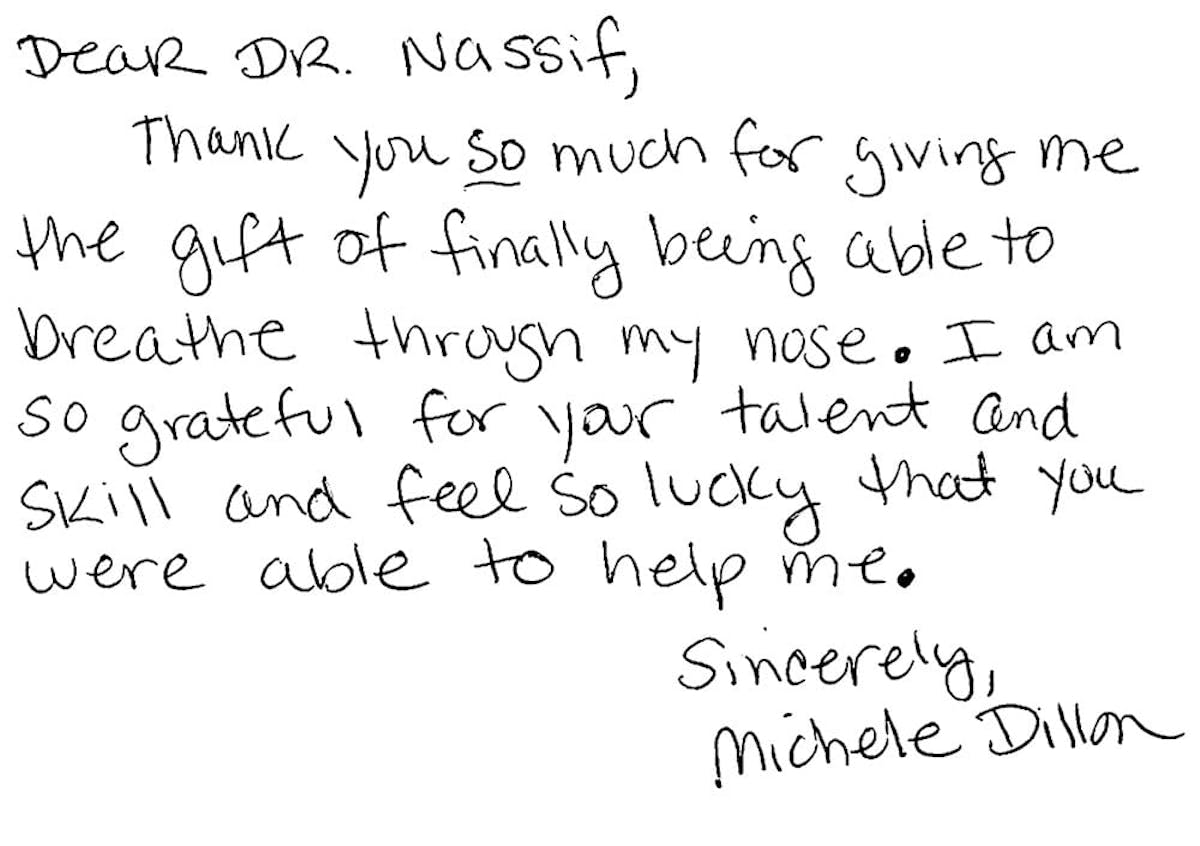 Dear Dr. Nassif,
Thank you so much for giving me
the gift of finally being able to
breathe through my nose. I am
so grateful for your talent and
skill and feel so lucky that you
were able to help me.
Sincerely,
Michele Dillon